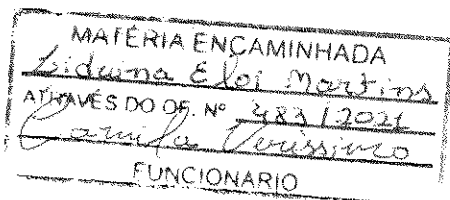 MATÉRIA ENCAMINHADA
Liduina Eloi Martins
ATRAVÉS DO OF. Nº 483 / 2021
Camila Verissimo
FUNCIONARIO